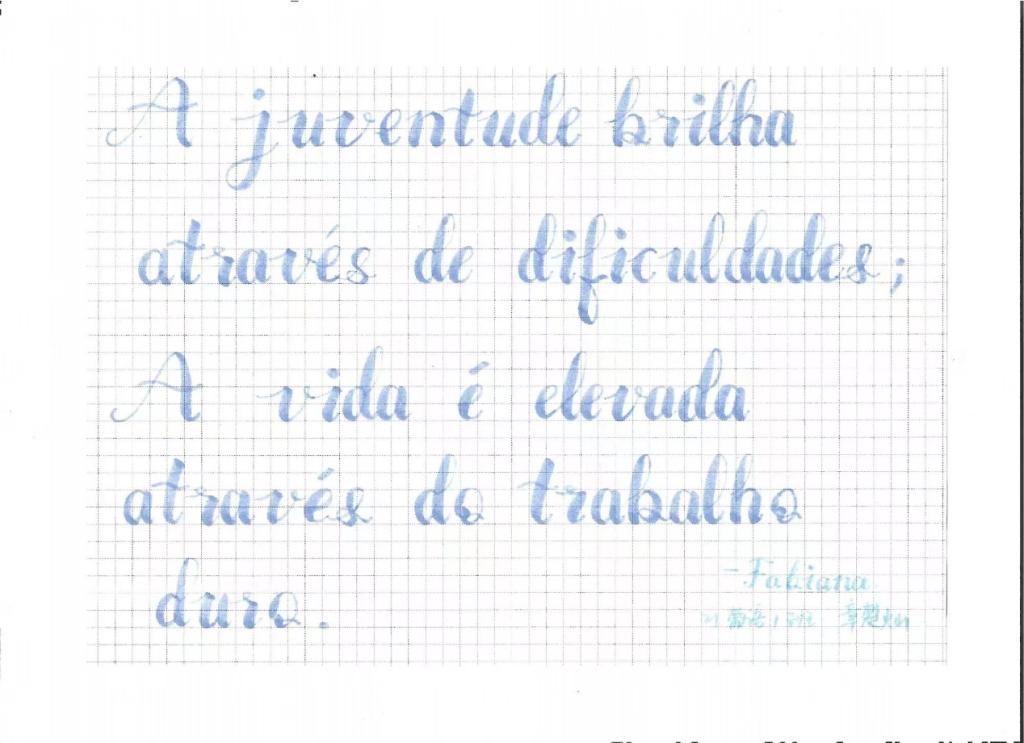 A juventude brilha
através de dificuldades;
A vida é elevada
através do trabalho
duro.
-Fabiana
21葡语1班